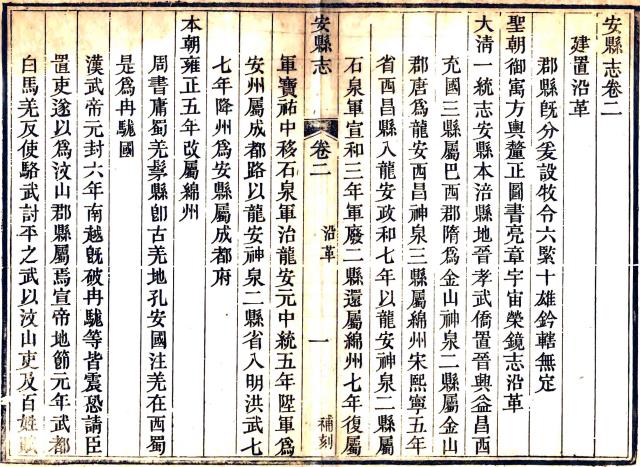 安縣志卷二
建置沿革
郡縣旣分爰設牧令六緊十雄鈐轄無定
聖朝御寓方輿釐正圖書亮章宇宙榮鏡志沿革
大清一統志安縣本涪縣地晉孝武僑置晉興益昌西
充國三縣屬巴西郡隋爲金山神泉二縣屬金山
郡唐爲龍安西昌神泉三縣屬綿州宋熙寧五年
省西昌縣入龍安政和七年以龍安神泉二縣屬
石泉軍宣和三年軍廢二縣還屬綿州七年復屬
安縣志
卷二
沿革
一
補刻
軍寶祐中移石泉軍治龍安元中統五年陞軍爲
安州屬成都路以龍安神泉二縣省入明洪武七
七年降州爲安縣屬成都府
本朝雍正五年改屬綿州
周書庸蜀羌髳縣卽古羌地孔安國注羌在西蜀
是爲冉駹國
漢武帝元封六年南越旣破冉駹等皆震恐請臣
置吏遂以爲汶山郡縣屬焉宣帝地節元年武都
白馬羌反使駱武討平之武以汶山吏及百姓賦